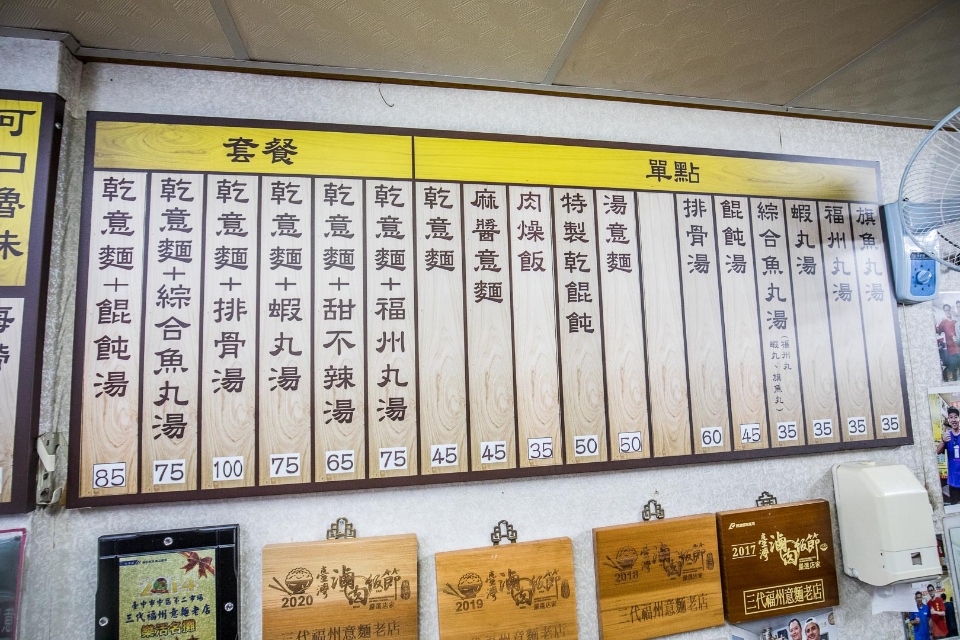 可口魯味
海帶
套餐
單點
乾意麵+餛飩湯
85
乾意麵+綜合魚丸湯
75
乾意麵+排骨湯
100
乾意麵+蝦丸湯
75
乾意麵+甜不辣湯
65
乾意麵+福州丸湯
75
乾意麵
45
麻醬意麵
45
肉燥飯
35
特製乾餛飩
50
湯意麵
50
排骨湯
60
餛飩湯
45
綜合魚丸湯(福州丸 蝦丸、旗魚丸)
35
蝦丸湯
35
福州丸湯
35
旗魚丸湯
35
臺中市中區第二市場
三代福州意麵老店
樂活名攤
2020
臺灣滷肉飯節
嚴選店家
三代福州意麵老店
2019
臺灣滷肉飯節
嚴選店家
2018
臺灣滷肉飯節
三代福州意麵老店
2017
臺灣滷肉飯節
嚴選店家
三代福州意麵老店